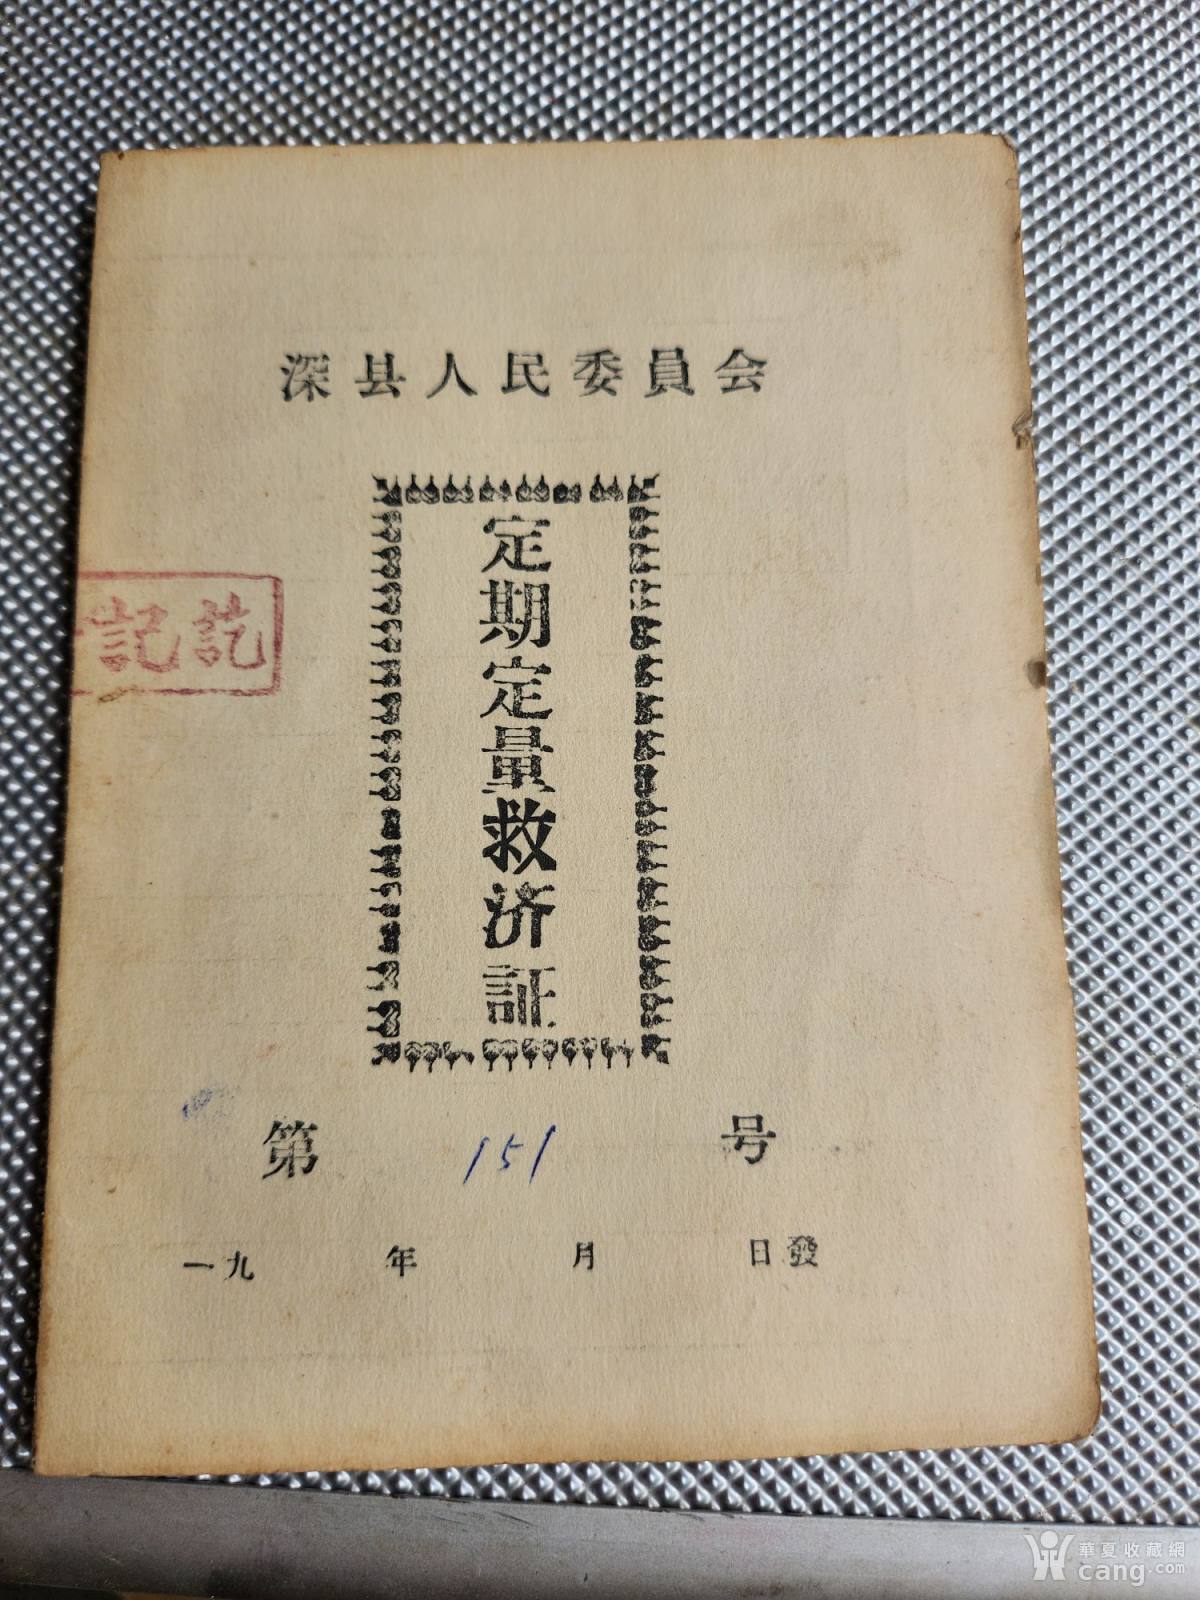 深县人民委員会
定期定量救济証
記訖
第 151 号
一九 年 月 日發
華夏收藏網
cang.com